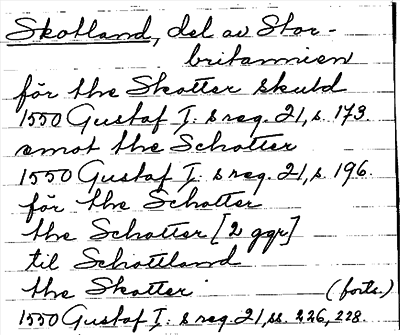 Skotland, del av Stor-
britannien
för the Skotter skuld
1550 Gustaf I: s reg. 21, s. 173.
emot the Schotter
1550 Gustaf I: s reg. 21, s. 196.
för the Schotter
the Schotter [2 ggr]
til Schottland
the Skotter (forts.)
1550 Gustaf I: s reg. 21, ss. 226, 228.